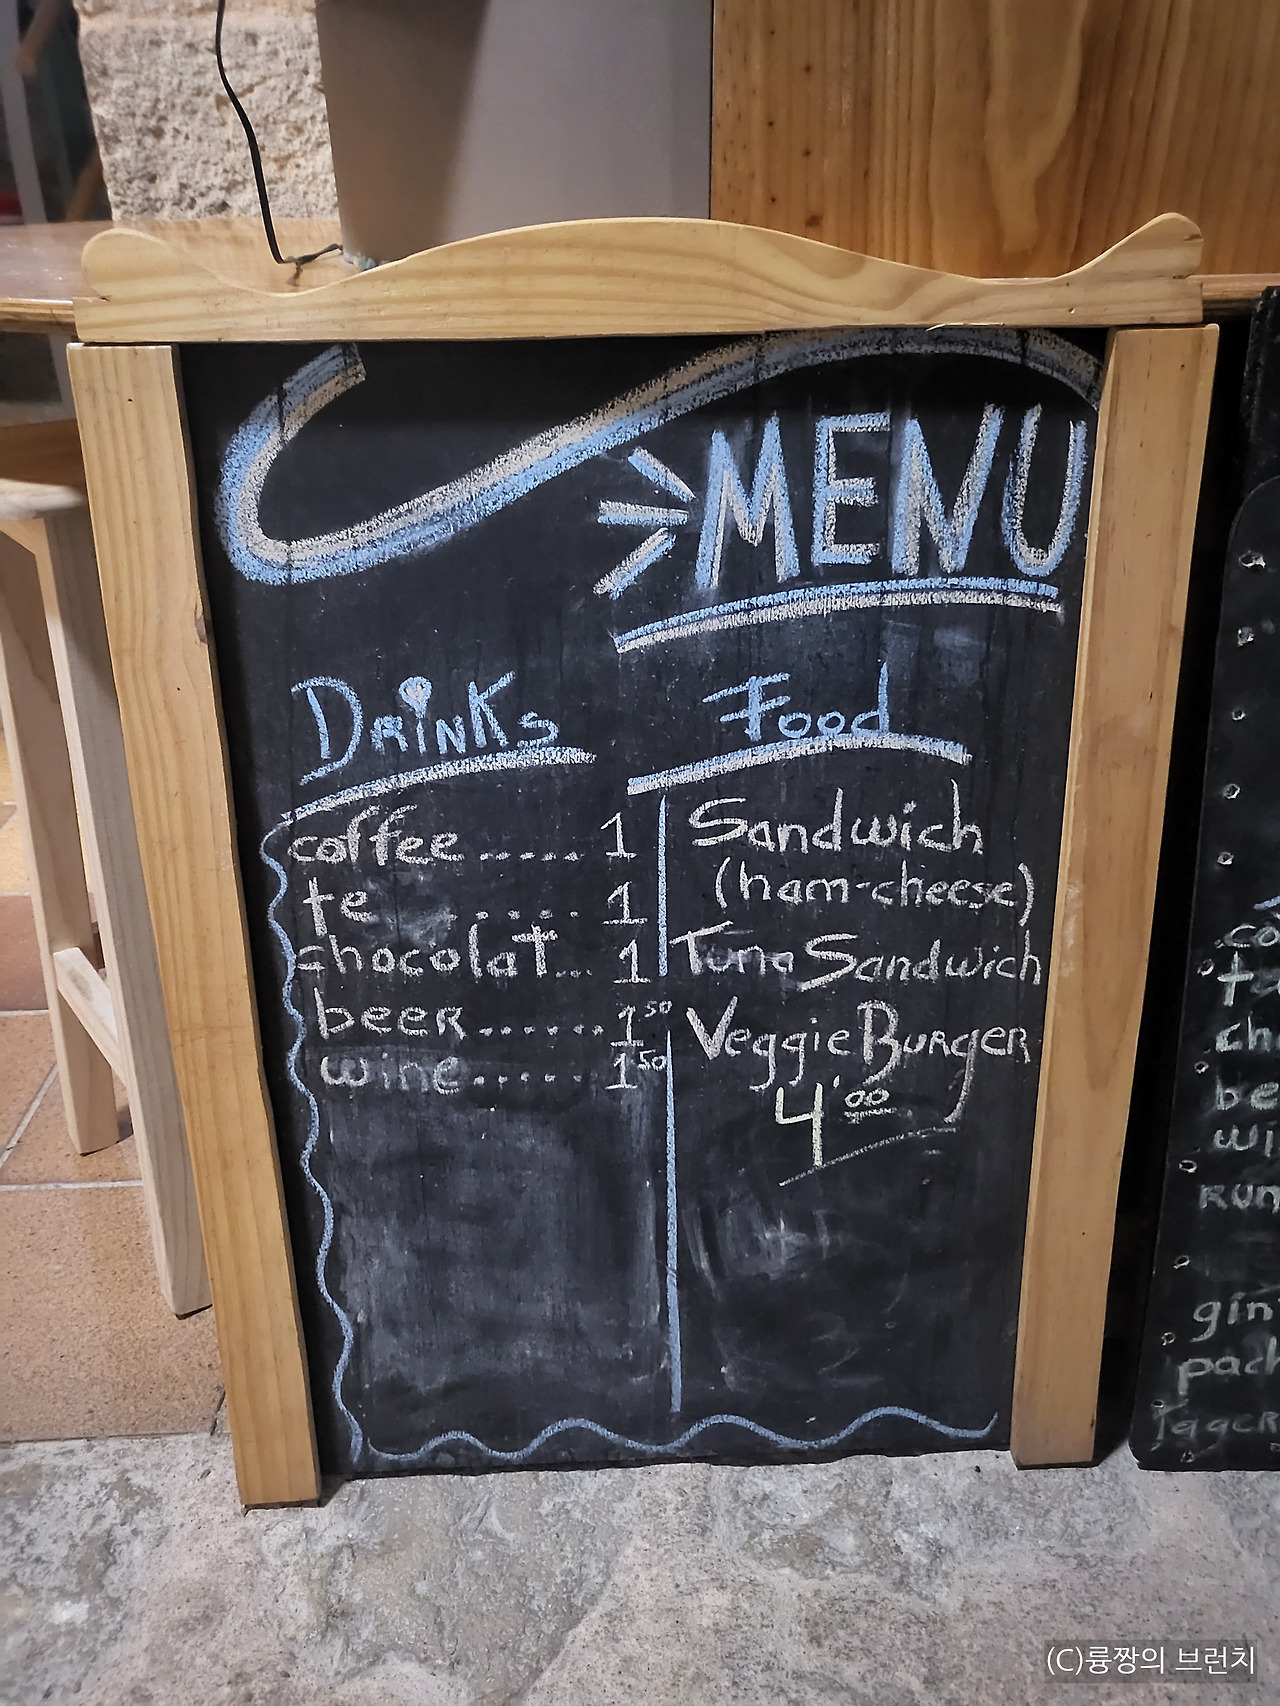 MENU
Drinks
coffee ..... 1
te ..... 1
chocolat... 1
beer ...... 1.50
wine ..... 1.50
Food
Sandwich
(ham-cheese)
Tuna Sandwich
Veggie Burger
4'00
be
wi
gin
(C)륭짱의 브런치